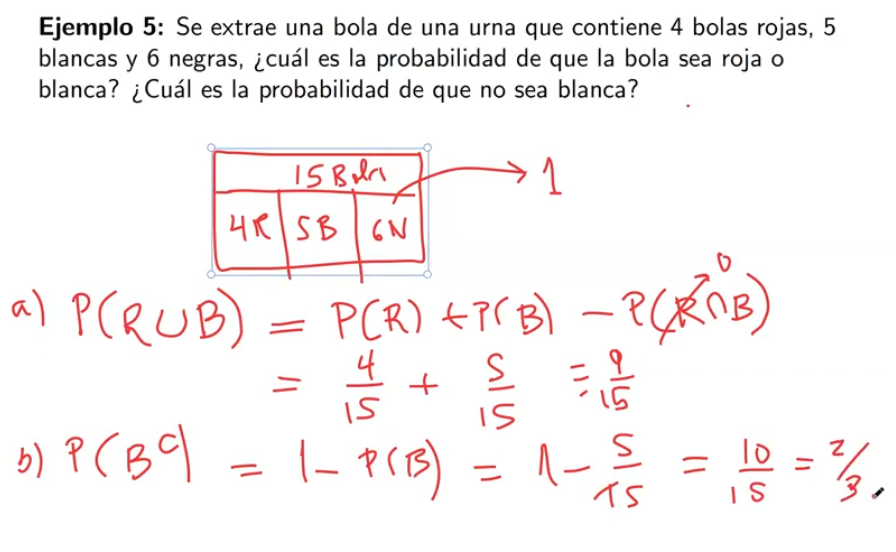 Ejemplo 5: Se extrae una bola de una urna que contiene 4 bolas rojas, 5
blancas y 6 negras, ¿cuál es la probabilidad de que la bola sea roja o
blanca? ¿Cuál es la probabilidad de que no sea blanca?
15 Bolas → 1
4R | 5B | 6N
0
a) P(R∪B) = P(R) + P(B) - P(R∩B)
= 4/15 + 5/15 = 9/15
b) P(B^c) = 1 - P(B) = 1 - 5/15 = 10/15 = 2/3.